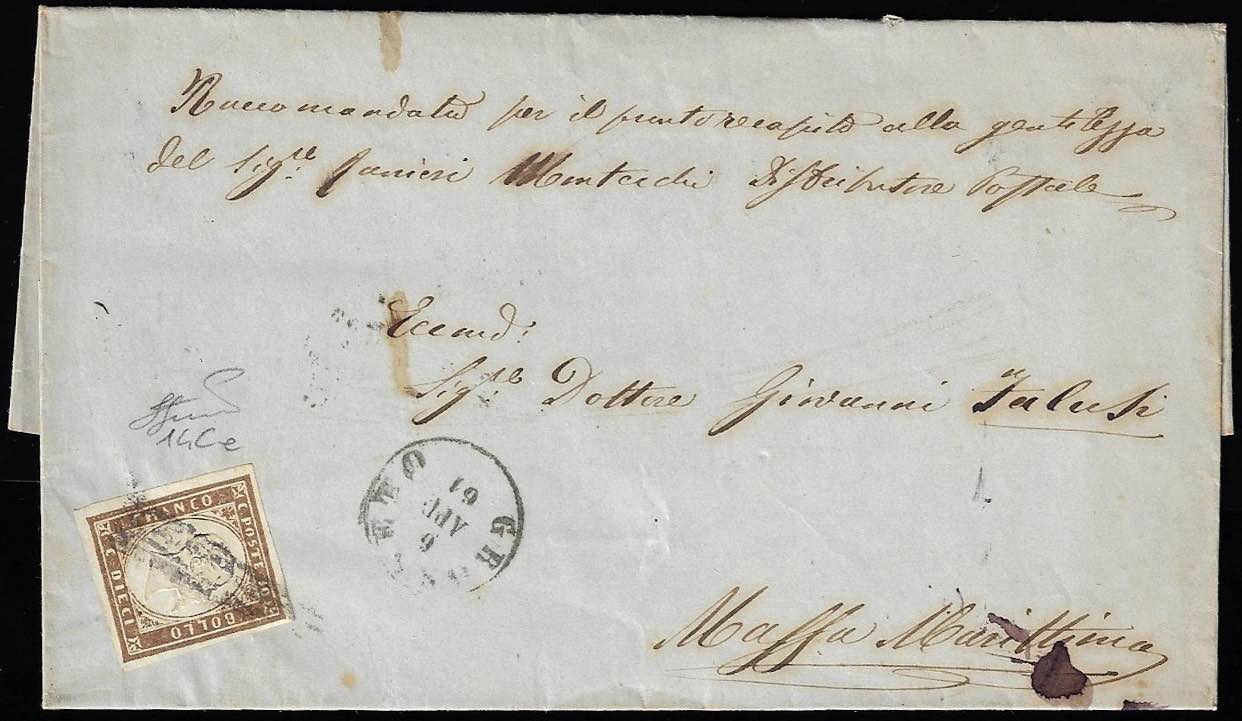 Raccomandata per il pronto recapito alla gentilezza
del Sig.re Ranieri Montecchi Distributore Postale
Eccmo:
Sig.re Dottore Giovanni Falusi
14Ce
GR TO
6
APR
61
FRANCO
C. POSTE 10
C. DIECI
BOLLO
Massa Marittima